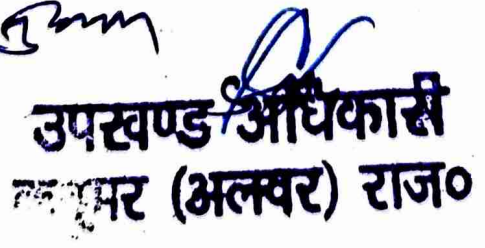 उपखण्ड अधिकारी
(अलवर) राज०